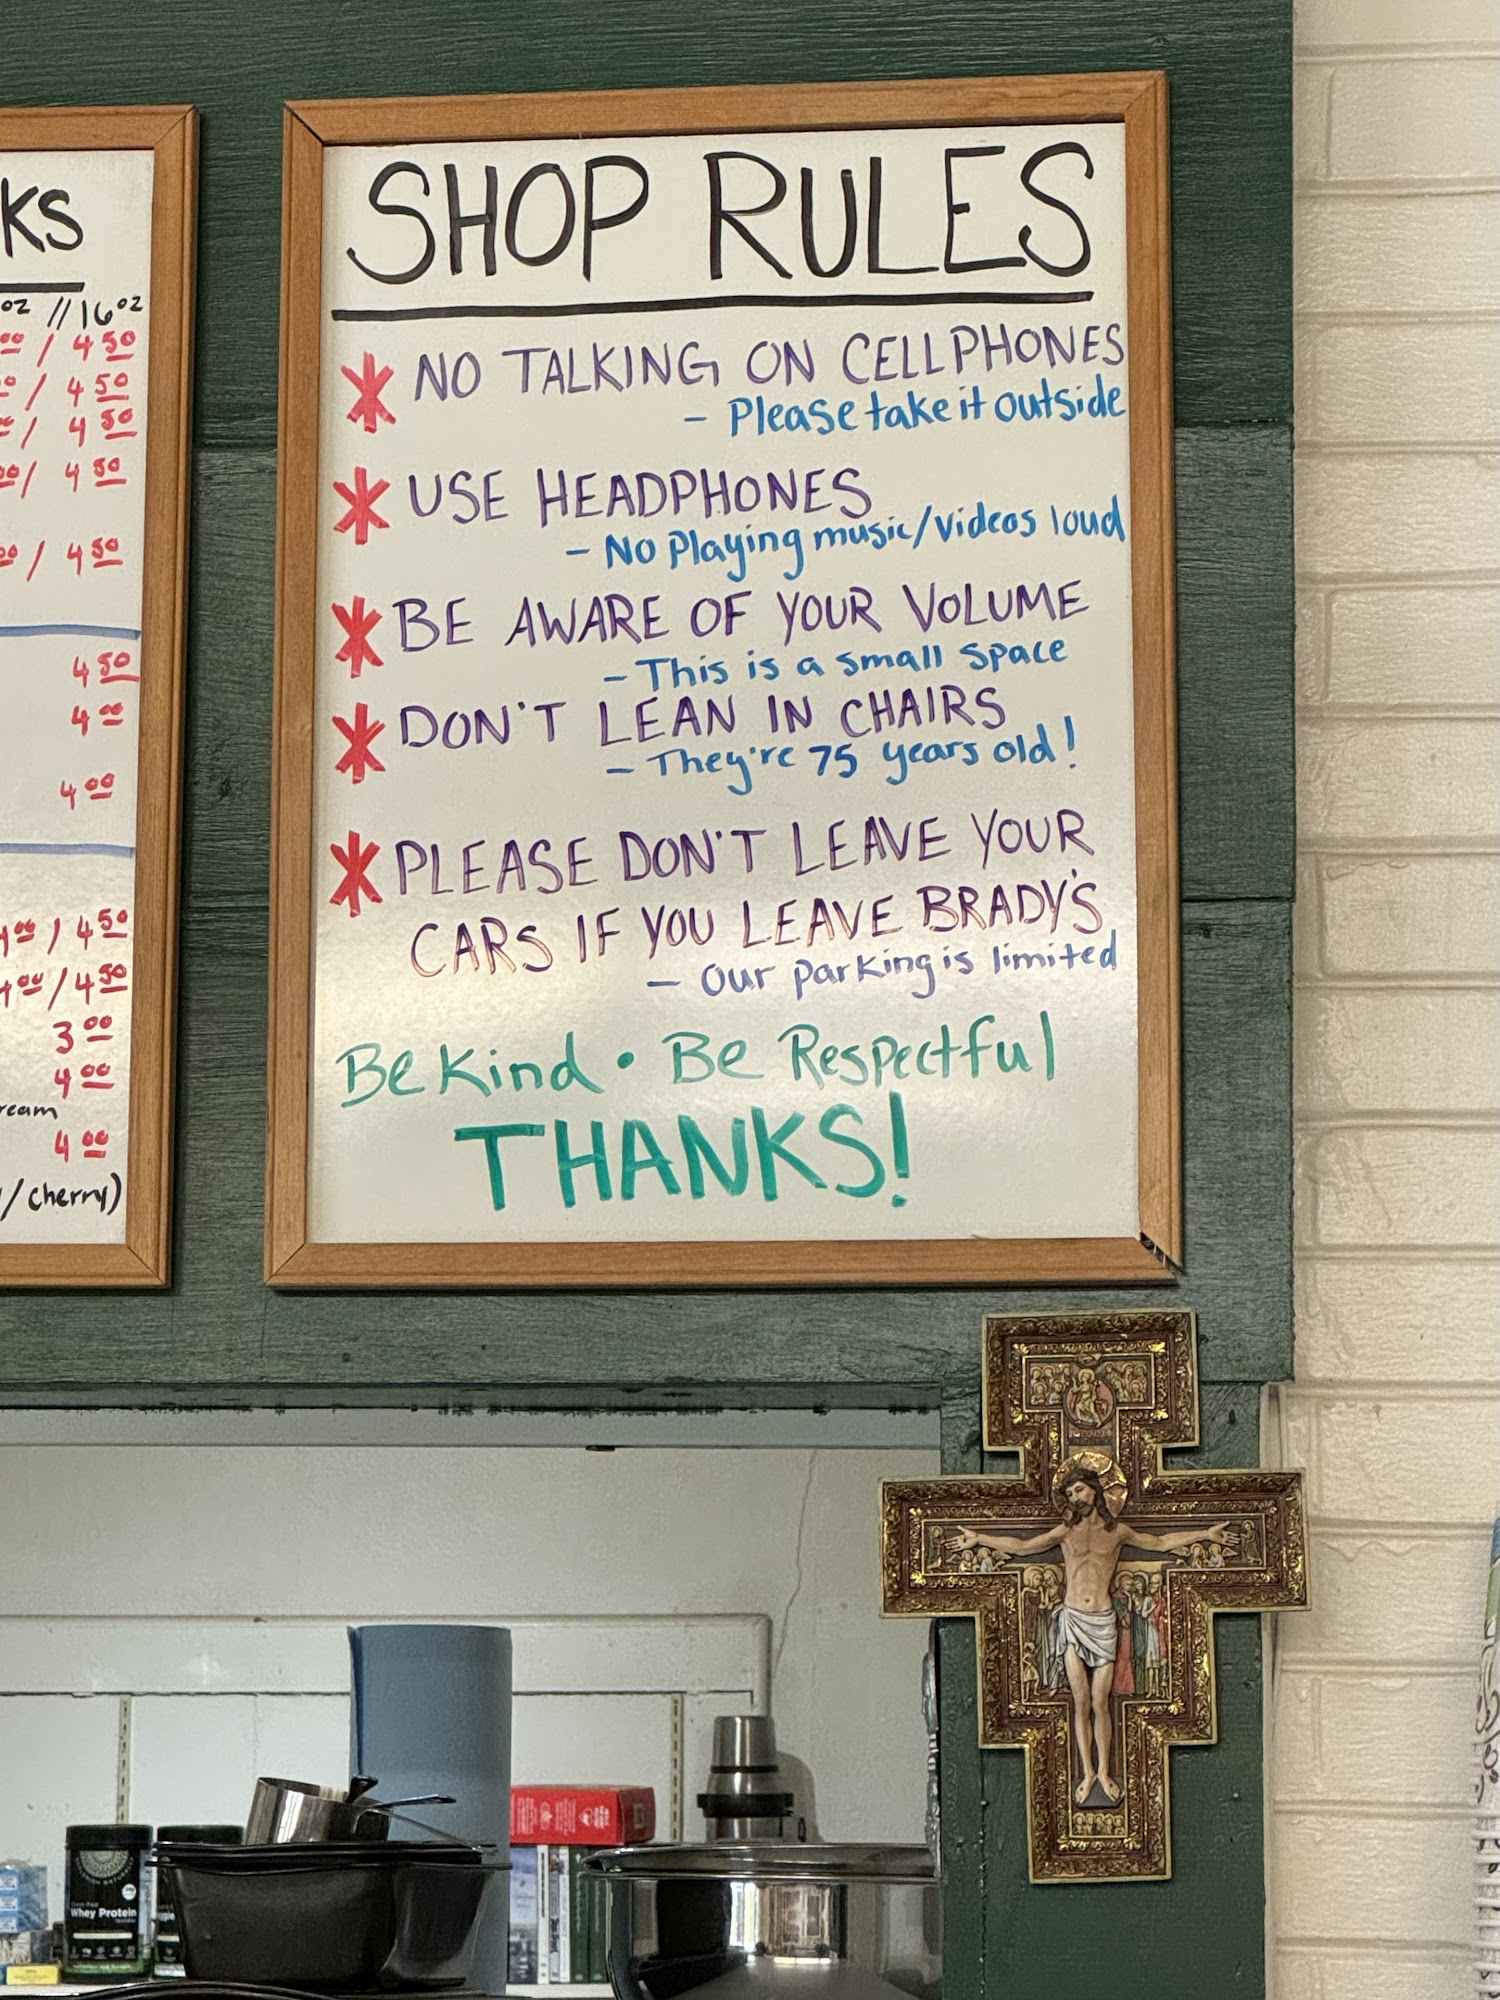 KS
oz // 16oz
/ 4 50
/ 4 50
/ 4 50
/ 4 50
/ 4 50
4 50
4 00
4 00
4 00 / 4 50
4 00 / 4 50
3 00
4 00
ream
4 00
/ cherry)
SHOP RULES
* NO TALKING ON CELLPHONES
- Please take it outside
* USE HEADPHONES
- No Playing music/videos loud
* BE AWARE OF YOUR VOLUME
- This is a small space
* DON'T LEAN IN CHAIRS
- They're 75 years old!
* PLEASE DON'T LEAVE YOUR
CARS IF YOU LEAVE BRADY'S
- Our parking is limited
Be Kind • Be Respectful
THANKS!
Whey Protein